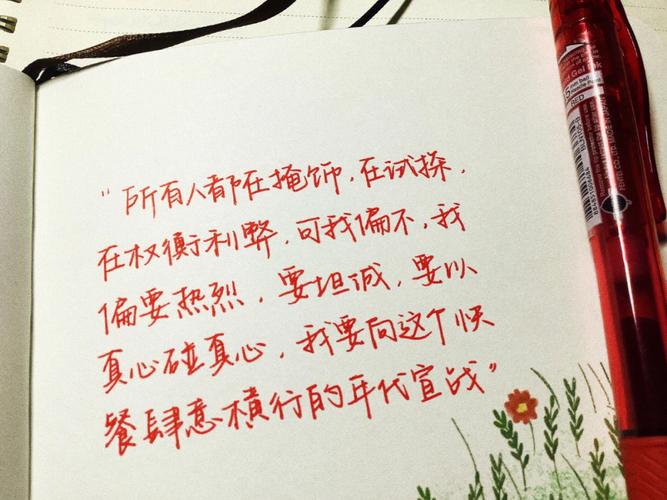 “所有人都在掩饰，在试探，
在权衡利弊，可我偏不，我
偏要热烈，要坦诚，要以
真心碰真心，我要向这个快
餐肆意横行的年代宣战”
Gel Ink
RED